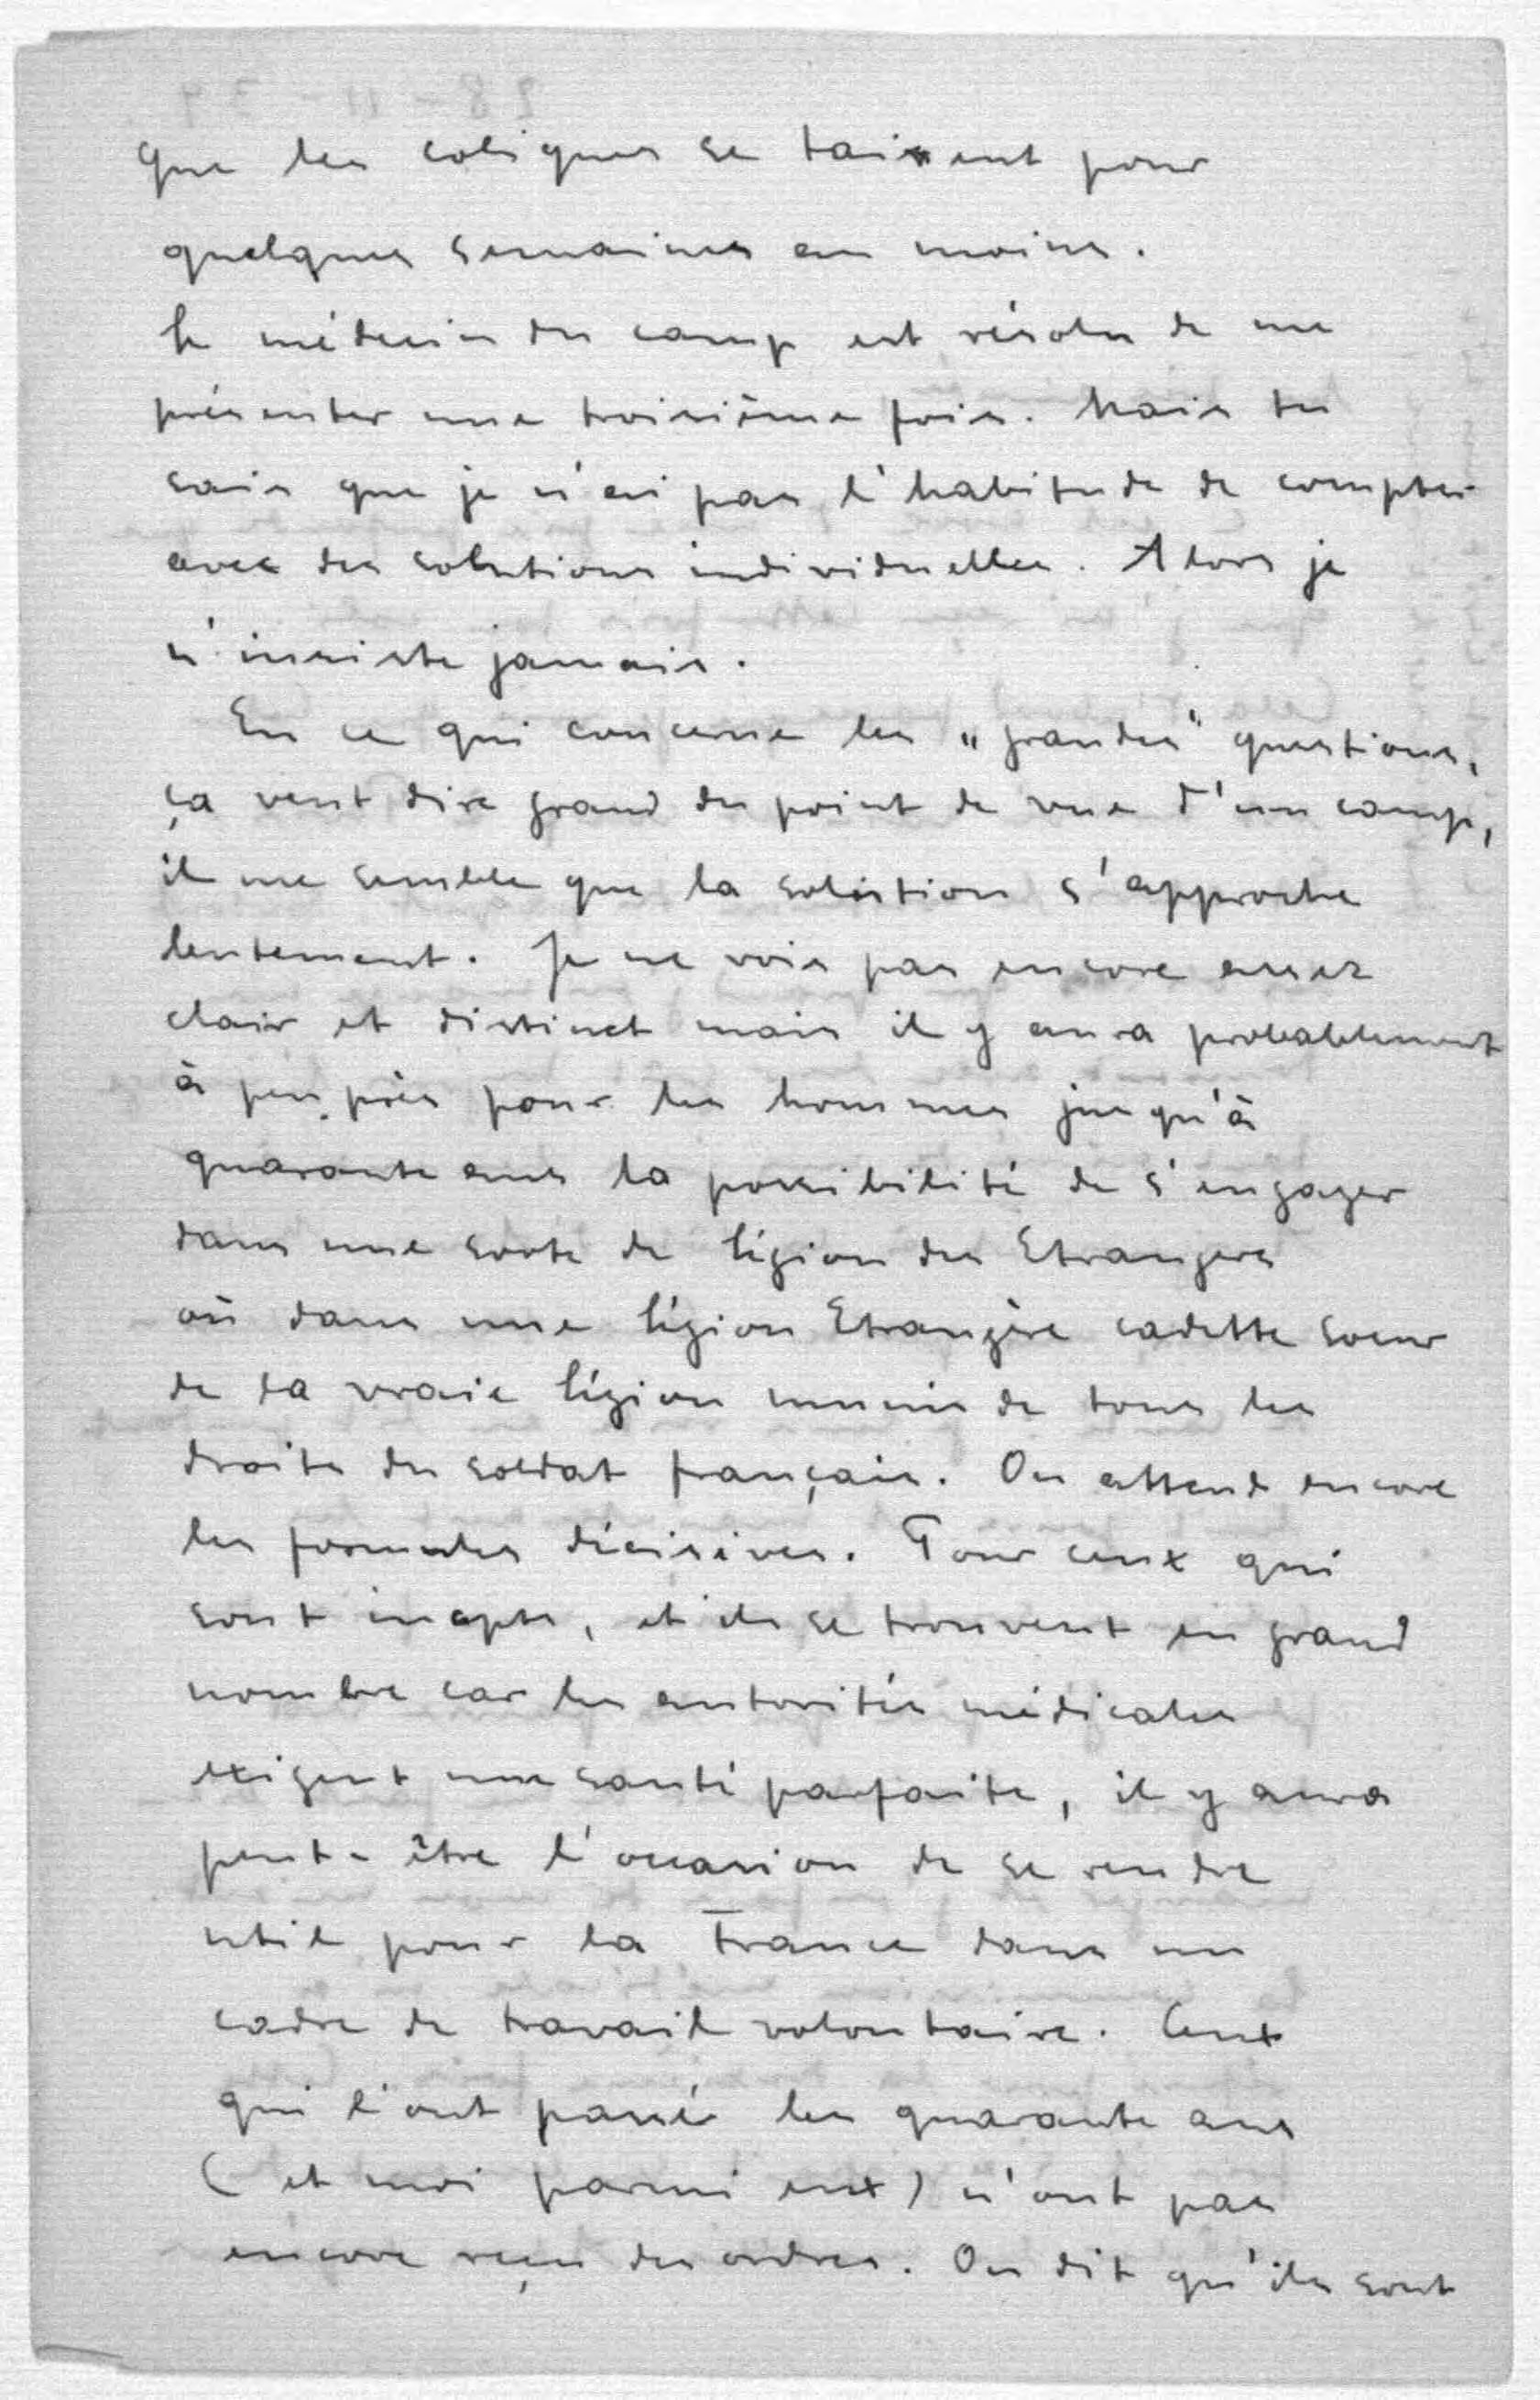 que les coliques se taisent pour
quelques semaines au moins.
Le médecin du camp est résolu de me
présenter une troisième fois. Mais tu
sais que je n'ai pas l'habitude de compter
avec des solutions individuelles. Alors je
n'insiste jamais.
En ce qui concerne les "grandes" questions,
ça veut dire grand du point de vue d'un camp,
il me semble que la solution s'approche
lentement. Je ne vois pas encore assez
clair et distinct mais il y aura probablement
à peu près pour les hommes jusqu'à
quarante ans la possibilité de s'engager
dans une sorte de légion des Etrangers
où dans une légion Etrangère cadette soeur
de la vraie légion munie de tous les
droits du soldat français. On attend encore
les formules décisives. Pour ceux qui
sont inapts, et ils se trouvent en grand
nombre car les autorités médicales
exigent une santé parfaite, il y aura
peut-être l'occasion de se rendre
util pour la France dans un
cadre de travail volontaire. Ceux
qui l'ont passé les quarante ans
(et moi parmi eux) n'ont pas
encore reçu des ordres. On dit qu'ils sont